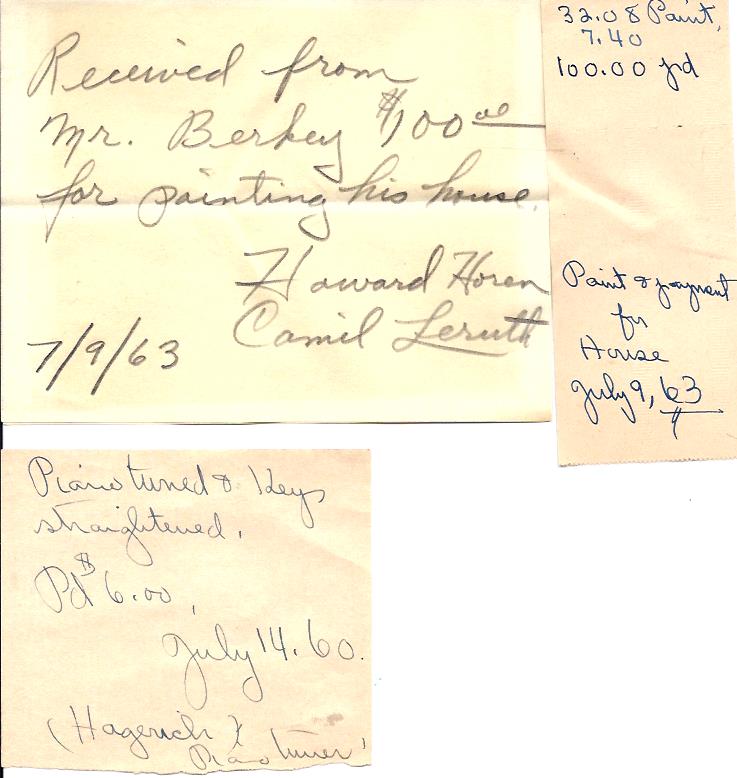 Received from
Mr. Berkey $100.00
for painting his house.
Howard Horen
Camil Leruth
7/9/63
32.08 Paint,
7.40
100.00 pd
Paint & payment
for
House
July 9, 63
Piano tuned & Keys
straightened.
Pd $6.00,
July 14. 60.
(Hagerich
Piano tuner)